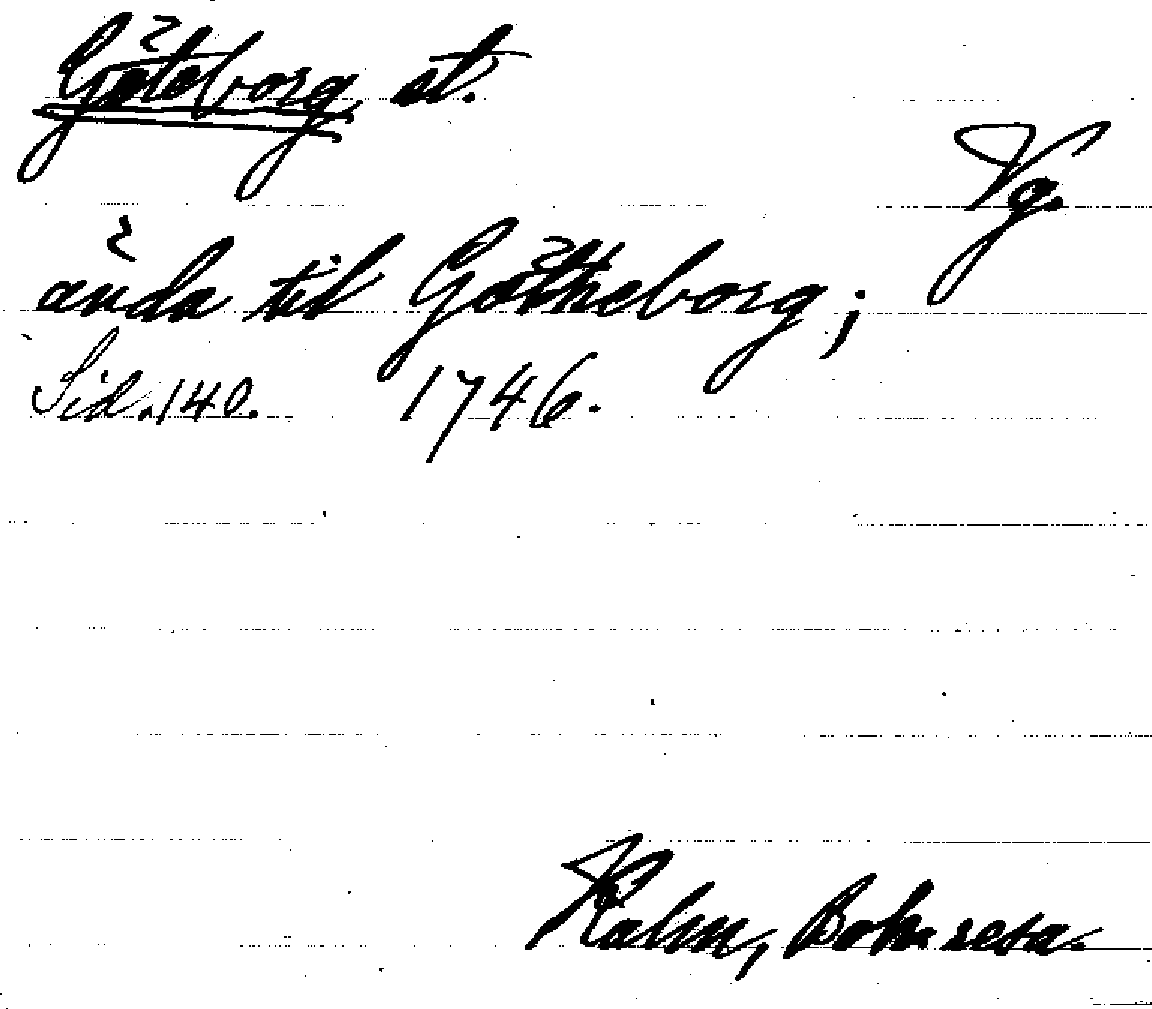 Göteborg st.
Vg.
ända til Götheborg;
Sid. 140. 1746.
Kalm, Boh. resa.